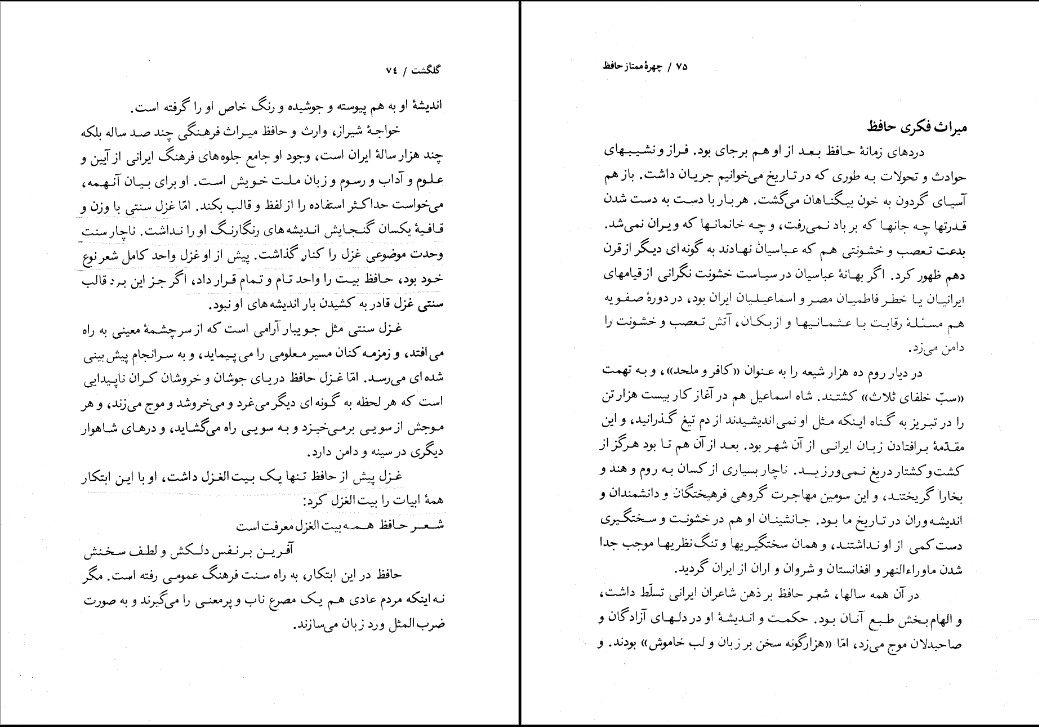 گلگشت / ٧٤
اندیشهٔ او به هم پیوسته و جوشیده و رنگ خاص او را گرفته است.
خواجهٔ شیراز، وارث و حافظ میراث فرهنگی چند صد ساله بلکه
چند هزار سالهٔ ایران است، وجود او جامع جلوه‌های فرهنگ ایرانی از آیین و
علوم و آداب و رسوم و زبان ملت خویش است. او برای بیان آنهمه،
می‌خواست حداکثر استفاده را از لفظ و قالب بکند. امّا غزل سنتی با وزن و
قافیهٔ یکسان گنجایش اندیشه‌های رنگارنگ او را نداشت. ناچار سنت
وحدت موضوعی غزل را کنار گذاشت. پیش از او غزل واحد کامل شعر نوع
خود بود، حافظ بیت را واحد تام و تمام قرار داد، اگر جز این بود قالب
سنتی غزل قادر به کشیدن بار اندیشه‌های او نبود.
غزل سنتی مثل جویبار آرامی است که از سرچشمهٔ معینی به راه
می‌افتد، و زمزمه کنان مسیر معلومی را می‌پیماید، و به سرانجام پیش‌بینی
شده‌ای می‌رسد. امّا غزل حافظ دریای جوشان و خروشان کران ناپیدایی
است که هر لحظه به گونه‌ای دیگر می‌غرد و می‌خروشد و موج می‌زند، و هر
موجش از سویی برمی‌خیزد و به سویی راه می‌گشاید، و درهای شاهوار
دیگری در سینه و دامن دارد.
غزل پیش از حافظ تنها یک بیت‌الغزل داشت، او با این ابتکار
همهٔ ابیات را بیت‌الغزل کرد:
شعر حافظ همه بیت‌الغزل معرفت است
آفرین بر نفس دلکش و لطف سخنش
حافظ در این ابتکار، به راه سنت فرهنگ عمومی رفته است. مگر
نه اینکه مردم عادی هم یک مصرع ناب و پرمعنی را می‌گیرند و به صورت
ضرب‌المثل ورد زبان می‌سازند.
٧٥ / چهرهٔ ممتاز حافظ
میراث فکری حافظ
دردهای زمانهٔ حافظ بعد از او هم برجای بود. فراز و نشیبهای
حوادث و تحولات به طوری که در تاریخ می‌خوانیم جریان داشت. باز هم
آسیای گردون به خون بیگناهان می‌گشت. هر بار با دست به دست شدن
قدرتها چه جانها که بر باد نمی‌رفت، و چه خانمانها که ویران نمی‌شد.
بدعت تعصب و خشونتی هم که عباسیان نهادند به گونه‌ای دیگر از قرن
دهم ظهور کرد. اگر بهانهٔ عباسیان در سیاست خشونت نگرانی از قیامهای
ایرانیان یا خطر فاطمیان مصر و اسماعیلیان ایران بود، در دورهٔ صفویه
هم مسئلهٔ رقابت با عثمانیها و ازبکان، آتش تعصب و خشونت را
دامن می‌زد.
در دیار روم ده هزار شیعه را به عنوان «کافر و ملحد»، و به تهمت
«سبّ خلفای ثلاث» کشتند. شاه اسماعیل هم در آغاز کار بیست هزار تن
را در تبریز به گناه اینکه مثل او نمی‌اندیشیدند از دم تیغ گذرانید، و این
مقدّمهٔ برافتادن زبان ایرانی از آن شهر بود. بعد از آن هم تا بود هرگز از
کشت و کشتار دریغ نمی‌ورزید. ناچار بسیاری از کسان به روم و هند و
بخارا گریختند، و این سومین مهاجرت گروهی فرهیختگان و دانشمندان و
اندیشه‌وران در تاریخ ما بود. جانشینان او هم در خشونت و سختگیری
دست کمی از او نداشتند، و همان سختگیریها و تنگ نظریها موجب جدا
شدن ماوراءالنهر و افغانستان و شروان و اران از ایران گردید.
در آن همه سالها، شعر حافظ بر ذهن شاعران ایرانی تسلّط داشت،
و الهام‌بخش طبع آنان بود. حکمت و اندیشهٔ او در دلهای آزادگان و
صاحبدلان موج می‌زد، امّا «هزارگونه سخن بر زبان و لب خاموش» بودند. و